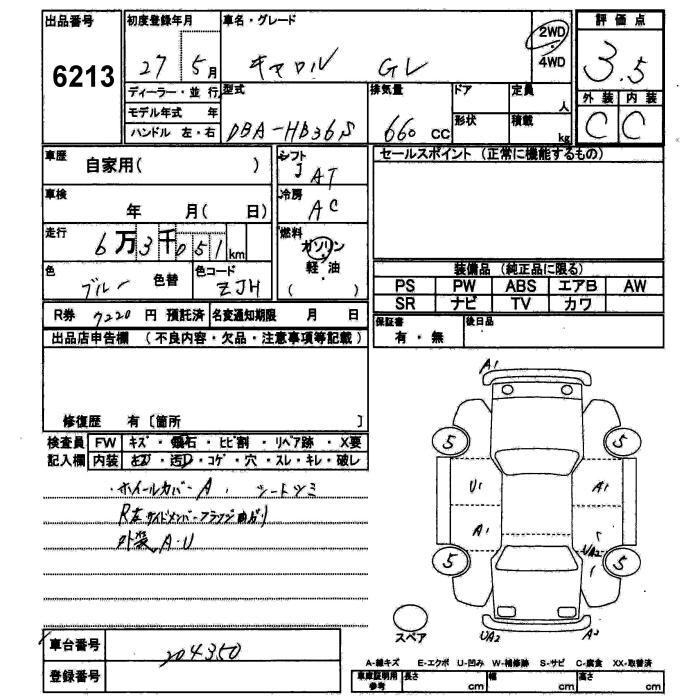 出品番号 初度登録年月 車名・グレード 評価点
6213 27 5月 キャロル GL 2WD 4WD 3.5
ディーラー・並行 型式 排気量 ドア 定員 人 外装 内装
モデル年式 年 形状 積載 kg C C
ハンドル 左・右 DBA-HB36S 660 CC
車歴 自家用( ) シフト AT セールスポイント (正常に機能するもの)
車検 年 月( 日) 冷房 AC
走行 6万3千051km 燃料 ガソリン
軽・油
( )
色 ブルー 色替 色コード ZJH 装備品 (純正品に限る)
PS PW ABS エアB AW
SR ナビ TV カワ
R券 7220 円 預託済 名変通知期限 月 日 保証書 有・無 後日品
出品店申告欄 (不良内容・欠品・注意事項等記載)
修復歴 有〔箇所 〕
検査員 FW キズ・飛石・ヒビ割・リペア跡・X要
記入欄 内装 ・コゲ・穴・スレ・キレ・破レ
・ホイールカバーA、シートシミ
R左サイドメンバーフランジ曲がり
外装A・U
A1
5 5
U1 A1
A1 UA2
5 5
スペア UA2 A2
車台番号 204350
登録番号
A-線キズ E-エクボ U-凹み W-補修跡 S-サビ C-腐食 XX-取替済
車庫証明用参考 長さ cm 幅 cm 高さ cm